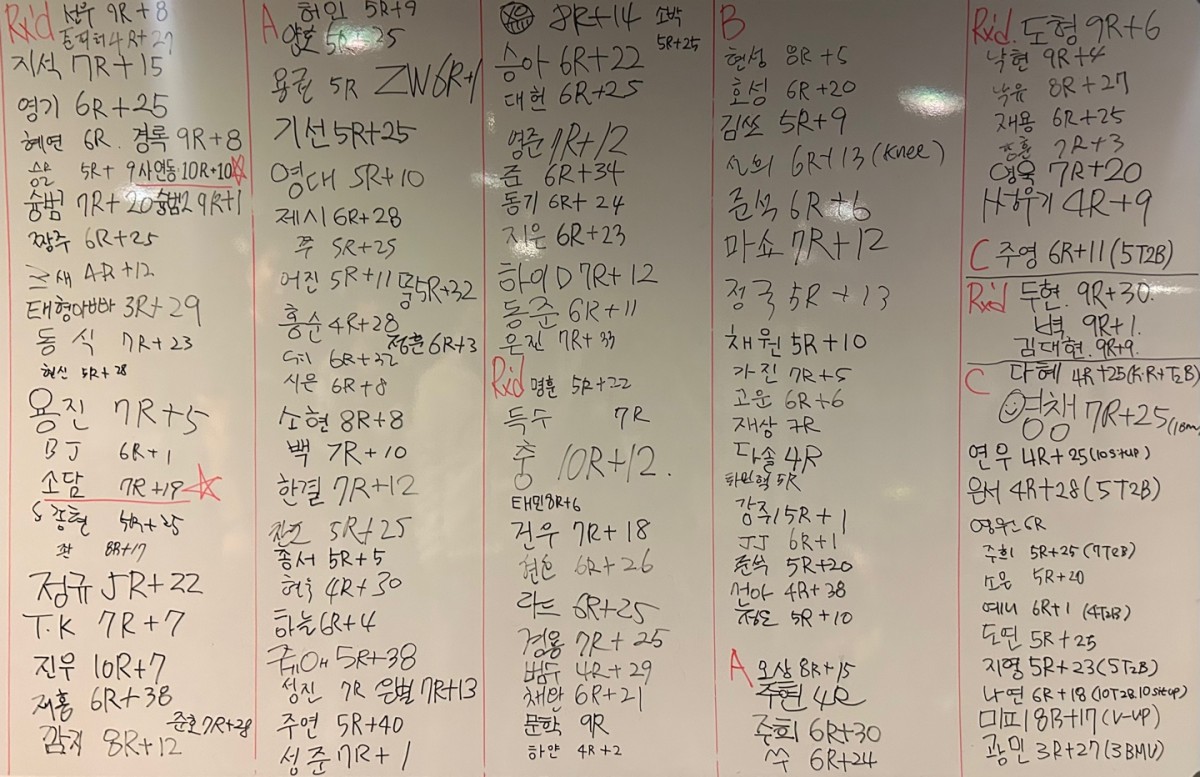 Rx'd 선우 9R+8
4R+27
지석 7R+15
영기 6R+25
혜연 6R. 경록 9R+8
승윤 5R+9 사연동 10R+10
숭범 7R+20 숭범2 9R+1
짱주 6R+25
새 4R+12
태형아빠 3R+29
동식 7R+23
현신 5R+28
용진 7R+5
BJ 6R+1
소담 7R+19
S 강현 5R+25
롼 8R+17
정규 5R+22
T.K 7R+7
진우 10R+7
재홍 6R+38
준호 7R+28
감자 8R+12
A 허인 5R+9
양호 5R+25
용권 5R ZW 6R+1
기선 5R+25
영대 5R+10
제시 6R+28
쭈 5R+25
어진 5R+11 몽 5R+32
흥순 4R+28
정훈 6R+3
6R+32
시은 6R+8
소현 8R+8
백 7R+10
한결 7R+12
5R+25
종서 5R+5
4R+30
하늘 6R+4
쥬아 5R+38
성진 7R 은별 7R+13
주연 5R+40
성준 7R+1
8R+14 소박 5R+25
승아 6R+22
대헌 6R+25
영준 7R+12
쥼 6R+34
동기 6R+24
지은 6R+23
하이D 7R+12
동준 6R+11
은진 7R+33
Rx'd 명훈 5R+22
득수 7R
충 10R+12.
태민 8R+6
건우 7R+18
현은 6R+26
라드 6R+25
경용 7R+25
범수 4R+29
채완 6R+21
문학 9R
하얀 4R+2
B
현성 8R+5
호성 6R+20
김쏘 5R+9
6R+13 (Knee)
준석 6R+6
마쇼 7R+12
정국 5R+13
채원 5R+10
가진 7R+5
고운 6R+6
재상 7R
다솔 4R
5R
강주 5R+1
JJ 6R+1
준석 5R+20
선아 4R+38
5R+10
A 오상 8R+15
주현 4R
주희 6R+30
쑤 6R+24
Rx'd. 도형 9R+6
낙현 9R+4
낙유 8R+27
재용 6R+25
7R+3
영욱 7R+20
4R+9
C 주영 6R+11 (5T2B)
Rx'd 두현. 9R+30.
9R+1.
김대현. 9R+9.
C 다혜 4R+25 (K.R+T2B)
영챙 7R+25
연우 4R+25 (10situp)
은서 4R+28 (5T2B)
영원 6R
주희 5R+25 (7T2B)
소은 5R+20
예니 6R+1 (4T2B)
도연 5R+25
지영 5R+23 (5T2B)
나연 6R+18 (10T2B. 10situp)
미피 8R+17 (V-UP)
광민 3R+27 (3BMU)